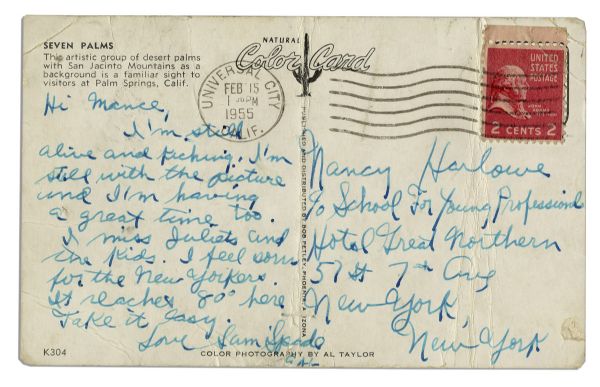 SEVEN PALMS
This artistic group of desert palms
with San Jacinto Mountains as a
background is a familiar sight to
visitors at Palm Springs, Calif.
Hi Mance,
I'm still
alive and kicking. I'm
still with the picture
and I'm having
a great time too.
I miss Juliets and
the kids. I feel sorry
for the New Yorkers.
It reaches 80° here
Take it easy.
Love Sam Spade
K304
NATURAL
Color Card
UNIVERSAL CITY
FEB 15
PM
1955
CALIF.
UNITED
STATES
POSTAGE
JOHN
ADAMS
2 CENTS 2
PUBLISHED AND DISTRIBUTED BY BOB PETLEY, PHOENIX, ARIZONA
Nancy Harlowe
c/o School For Young Professional
Hotel Great Northern
57 St 7th Ave
New York,
New York
COLOR PHOTOGRAPHY BY AL TAYLOR